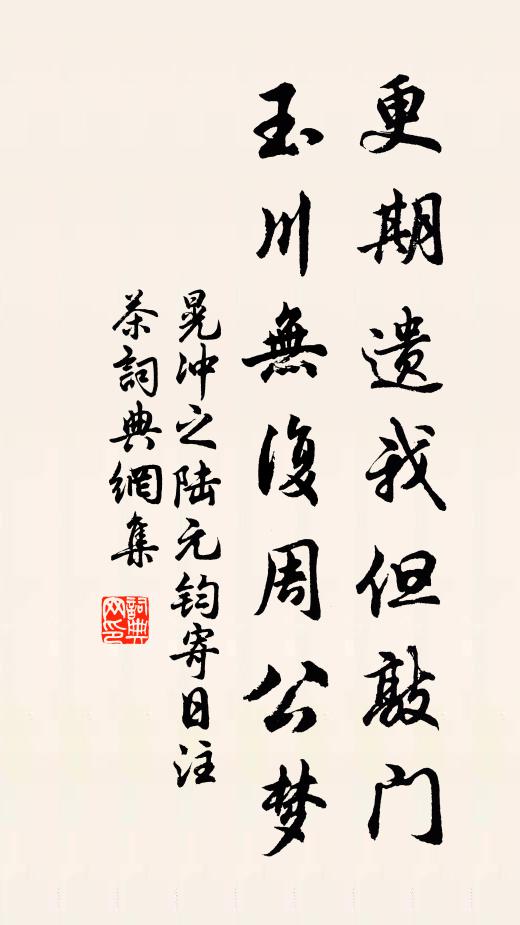 更期遗我但敲门
玉川無復周公梦
晁冲之陆元钧寄日注
茶詞典網集
詞典
网印